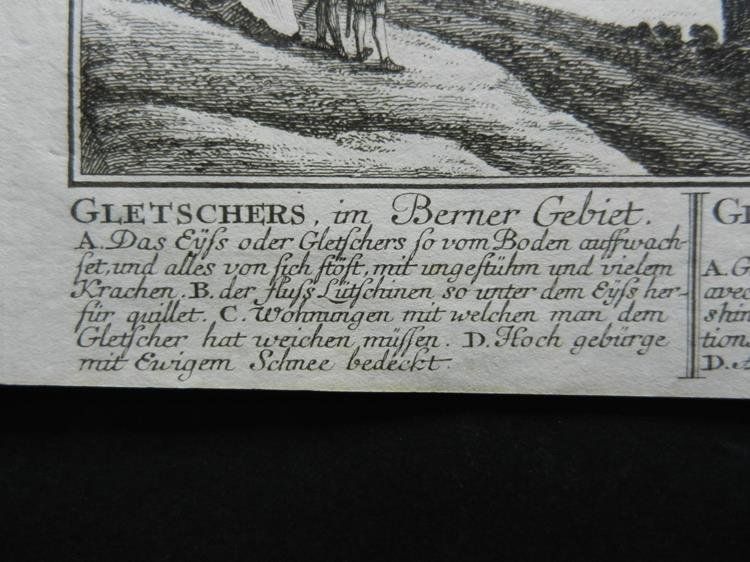 GLETSCHERS, im Berner Gebiet.
A. Das Eÿſs oder Gletſchers ſo vom Boden auffwach-
ſet, und alles von ſich ſtöſt, mit ungeſtühm und vielem
Krachen. B. der fluſs Lütſchinen, ſo unter dem Eÿſs her-
für quillet. C. Wohnungen mit welchen man dem
Gletſcher hat weichen müſſen. D. Hoch gebürge
mit Ewigem Schnee bedeckt.
A. G
avec
shin
tion
D. A